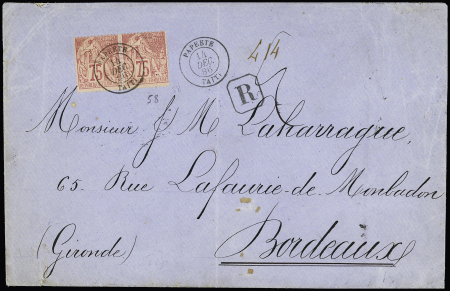 75 75
PAPEETE
14
DEC
TAITI
PAPEETE
14
DEC
TAITI
4/4
58
R
Monsieur J. M. Laharrague,
65. Rue Lafaurie-de-Monbadon
(Gironde) Bordeaux